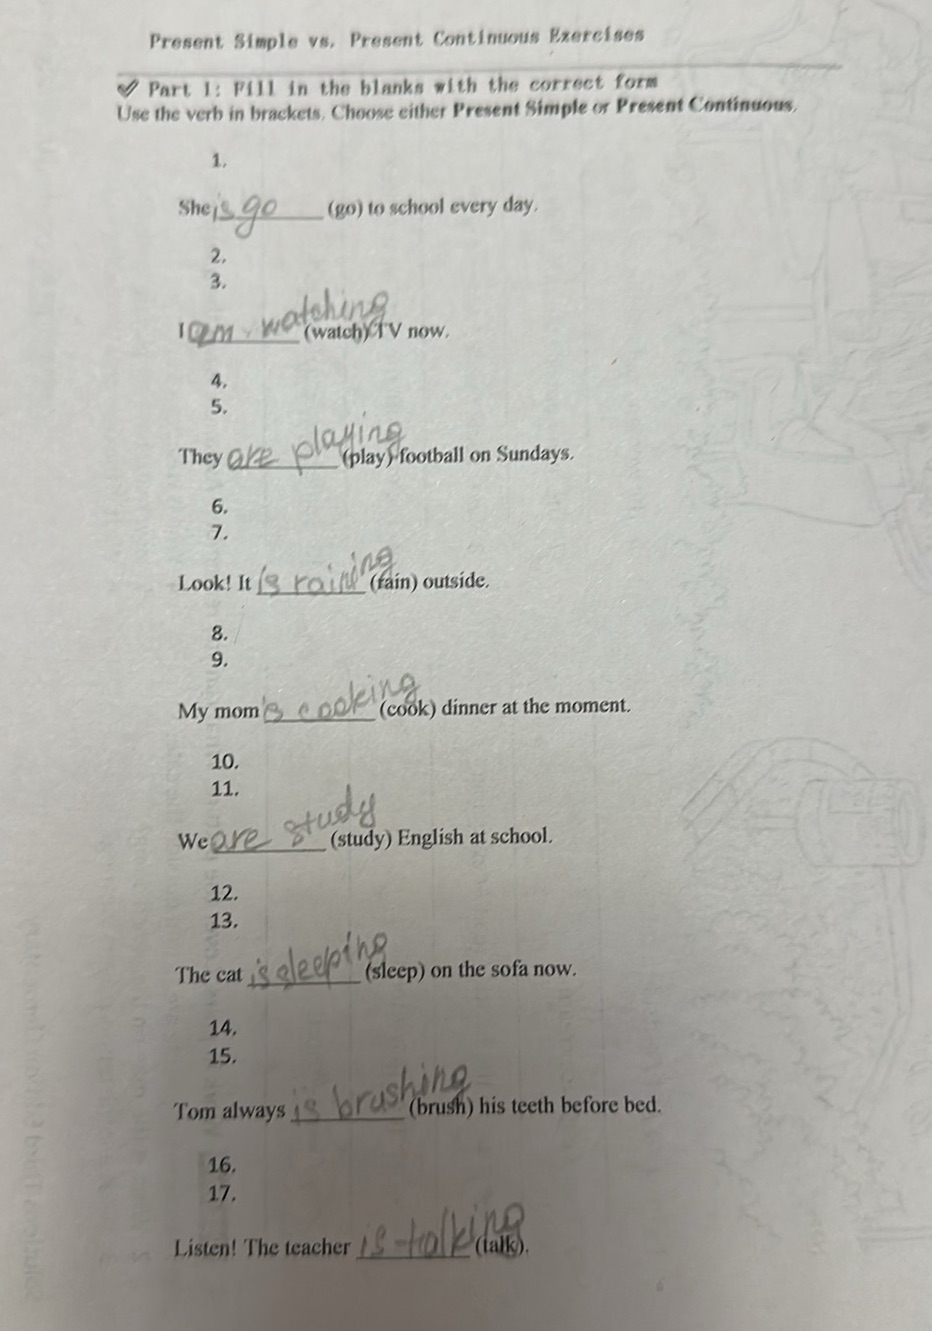 Present Simple vs. Present Continuous Exercises
✓ Part 1: Fill in the blanks with the correct form
Use the verb in brackets. Choose either Present Simple or Present Continuous.
1.
She is go (go) to school every day.
2.
3.
I am watching (watch) TV now.
4.
5.
They are playing (play) football on Sundays.
6.
7.
Look! It is raining (rain) outside.
8.
9.
My mom is cooking (cook) dinner at the moment.
10.
11.
We are study (study) English at school.
12.
13.
The cat is sleeping (sleep) on the sofa now.
14.
15.
Tom always is brushing (brush) his teeth before bed.
16.
17.
Listen! The teacher is talking (talk).